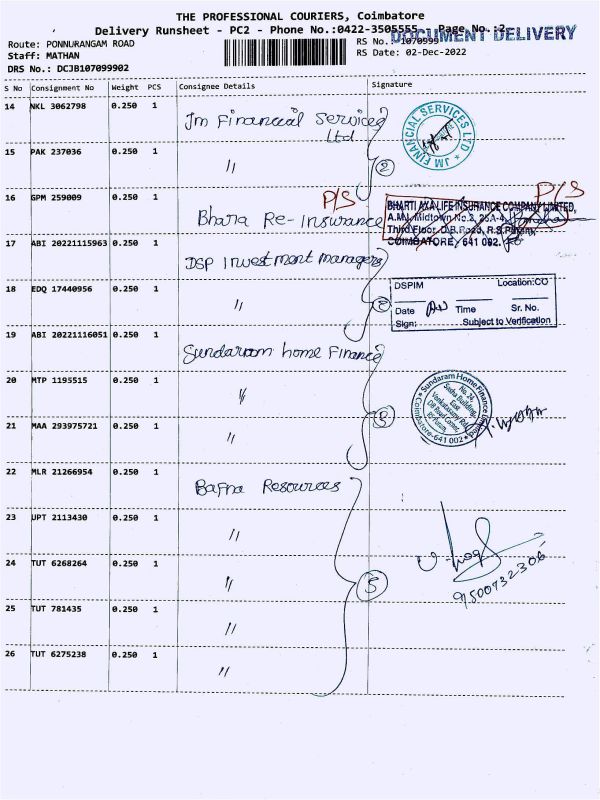 THE PROFESSIONAL COURIERS, Coimbatore
Delivery Runsheet - PC2 - Phone No.:0422-3505555 Page No.:2
DOCUMENT DELIVERY
Route: PONNURANGAM ROAD
RS No.: 1070999
Staff: MATHAN
RS Date: 02-Dec-2022
DRS No.: DCJB107099902
S No Consignment No Weight PCS Consignee Details Signature
14 NKL 3062798 0.250 1 Jm Financial Services Ltd
JM FINANCIAL SERVICES LTD
15 PAK 237036 0.250 1 "
2
16 GPM 259009 0.250 1 P/S P/S
Bharia Re-Insurance
BHARTI AXA LIFE INSURANCE COMPANY LIMITED,
A.M.I. Midtown No.2, 25A-4,
Third Floor, D.B.Road, R.S.Puram,
COIMBATORE, 641 002.
17 ABI 20221115963 0.250 1 DSP Investment managers
18 EDQ 17440956 0.250 1 "
2
DSPIM Location:CO
Date Time Sr. No.
Sign: Subject to Verification
19 ABI 20221116051 0.250 1 Sundaram home Finance
20 MTP 1195515 0.250 1 "
3
Sundaram Home Finance Limited
No.24,
East
Coimbatore-641 002
21 MAA 293975721 0.250 1 "
22 MLR 21266954 0.250 1 Bafna Resources
23 UPT 2113430 0.250 1 "
24 TUT 6268264 0.250 1 "
5
9500732306
25 TUT 781435 0.250 1 "
26 TUT 6275238 0.250 1 "